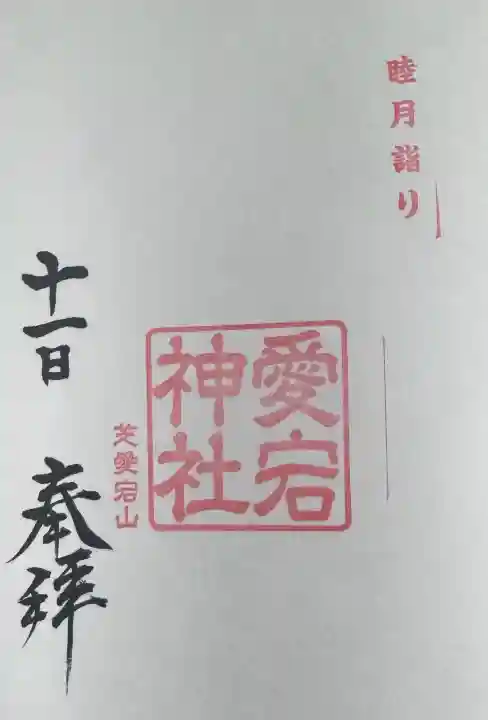 睦月詣り
愛宕
神社
芝愛宕山
十一日 奉拝